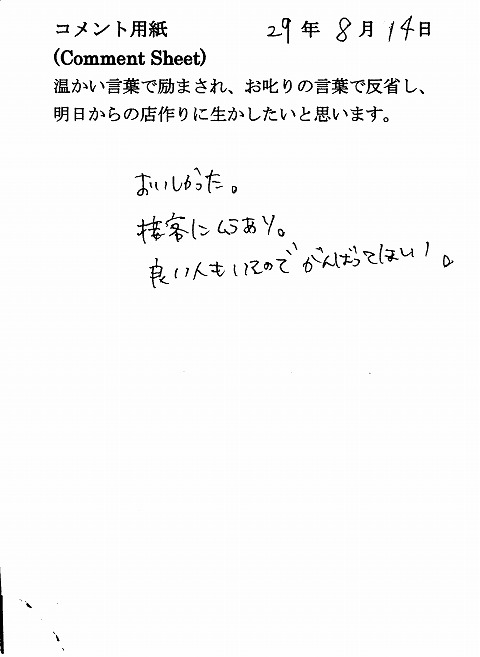 コメント用紙 29年 8月 14日
(Comment Sheet)
温かい言葉で励まされ、お叱りの言葉で反省し、
明日からの店作りに生かしたいと思います。
おいしかった。
接客にムラあり。
良い人もいるので がんばってほしい。